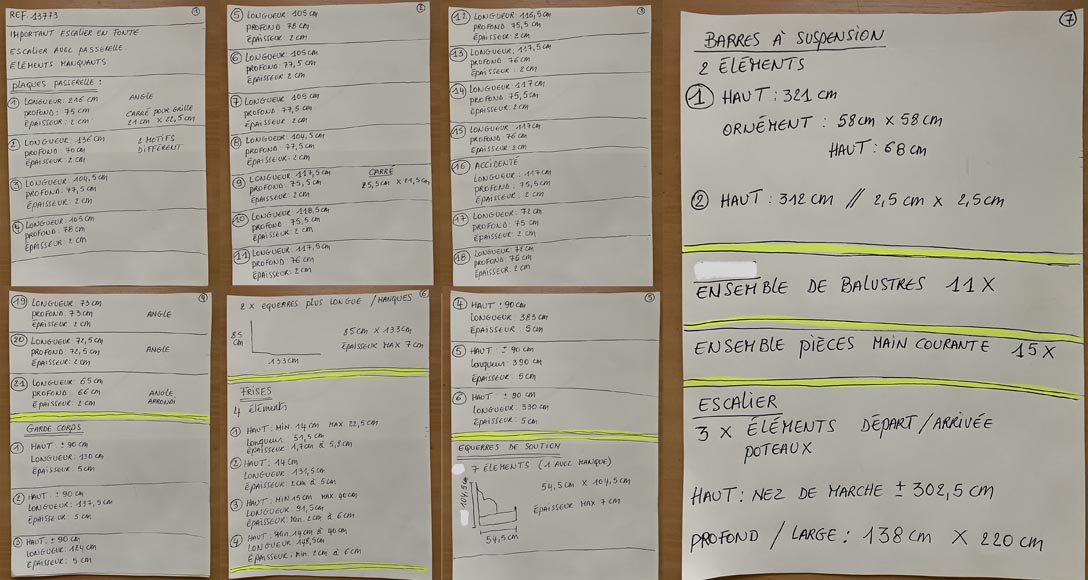 REF. 13773
①
IMPORTANT ESCALIER EN FONTE
ESCALIER AVEC PASSERELLE
ÉLÉMENTS MANQUANTS
PLAQUES PASSERELLE :
① LONGUEUR: 216 cm ANGLE
PROFOND: 75 cm CARRÉ POUR GRILLE
ÉPAISSEUR: 2 cm 21 cm X 22,5 cm
② LONGUEUR: 136 cm 2 MOTIFS
PROFOND: 70 cm DIFFÉRENT
ÉPAISSEUR: 2 cm
③ LONGUEUR: 104,5 cm
PROFOND: 77,5 cm
ÉPAISSEUR: 2 cm
④ LONGUEUR: 105 cm
PROFOND: 78 cm
ÉPAISSEUR: 2 cm
②
⑤ LONGUEUR: 105 cm
PROFOND: 78 cm
ÉPAISSEUR: 2 cm
⑥ LONGUEUR: 105 cm
PROFOND: 77,5 cm
ÉPAISSEUR: 2 cm
⑦ LONGUEUR: 105 cm
PROFOND: 77,5 cm
ÉPAISSEUR: 2 cm
⑧ LONGUEUR: 104,5 cm
PROFOND: 77,5 cm
ÉPAISSEUR: 2 cm
⑨ LONGUEUR: 117,5 cm CARRÉ
PROFOND: 75,5 cm 25,5 cm X 21,5 cm
ÉPAISSEUR: 2 cm
⑩ LONGUEUR: 118,5 cm
PROFOND: 75,5 cm
ÉPAISSEUR: 2 cm
⑪ LONGUEUR: 117,5 cm
PROFOND: 76 cm
ÉPAISSEUR: 2 cm
③
⑫ LONGUEUR: 116,5 cm
PROFOND: 75,5 cm
ÉPAISSEUR: 2 cm
⑬ LONGUEUR: 117,5 cm
PROFOND: 76 cm
ÉPAISSEUR: 2 cm
⑭ LONGUEUR: 117 cm
PROFOND: 75,5 cm
ÉPAISSEUR: 2 cm
⑮ LONGUEUR: 117 cm
PROFOND: 76 cm
ÉPAISSEUR: 2 cm
⑯ ACCIDENTÉ
LONGUEUR: 117 cm
PROFOND: 75,5 cm
ÉPAISSEUR: 2 cm
⑰ LONGUEUR: 72 cm
PROFOND: 75 cm
ÉPAISSEUR: 2 cm
⑱ LONGUEUR: 72 cm
PROFOND: 76 cm
ÉPAISSEUR: 2 cm
④
⑲ LONGUEUR: 73 cm
PROFOND: 73 cm ANGLE
ÉPAISSEUR: 2 cm
⑳ LONGUEUR: 72,5 cm
PROFOND: 72,5 cm ANGLE
ÉPAISSEUR: 2 cm
㉑ LONGUEUR: 65 cm
PROFOND: 66 cm ANGLE
ÉPAISSEUR: 2 cm ARRONDI
GARDE CORPS
① HAUT: ± 90 cm
LONGUEUR: 130 cm
ÉPAISSEUR: 5 cm
② HAUT: ± 90 cm
LONGUEUR: 137,5 cm
ÉPAISSEUR: 5 cm
③ HAUT: ± 90 cm
LONGUEUR: 124 cm
ÉPAISSEUR: 5 cm
⑥
2 X EQUERRES PLUS LONGUE / MANQUES
85 cm
85 cm X 133 cm
ÉPAISSEUR MAX 7 cm
133 cm
FRISES
4 éléments
① HAUT: MIN. 14 cm MAX. 22,5 cm
Longueur 51,5 cm
ÉPAISSEUR: 1,7 cm à 5,8 cm
② HAUT: 14 cm
LONGUEUR: 131,5 cm
ÉPAISSEUR: 2 cm à 5 cm
③ HAUT: MIN 15 cm MAX. 40 cm
LONGUEUR: 91,5 cm
ÉPAISSEUR: Min. 2 cm à 6 cm
④ HAUT: Min. 14 cm à 40 cm
LONGUEUR 148,5 cm
ÉPAISSEUR: Min. 2 cm à 6 cm
⑤
④ HAUT ± 90 cm
LONGUEUR 383 cm
ÉPAISSEUR: 5 cm
⑤ HAUT: ± 90 cm
Longueur: 390 cm
ÉPAISSEUR: 5 cm
⑥ HAUT: ± 90 cm
LONGUEUR: 330 cm
ÉPAISSEUR: 5 cm
EQUERRES DE SOUTIEN
7 ÉLÉMENTS (1 AVEC MANQUE)
54,5 cm X 104,5 cm
ÉPAISSEUR MAX 7 cm
104,5 cm
54,5 cm
⑦
BARRES À SUSPENSION
2 ÉLÉMENTS
① HAUT: 321 cm
ORNÉMENT : 58 cm X 58 cm
HAUT: 68 cm
② HAUT: 312 cm // 2,5 cm X 2,5 cm
ENSEMBLE DE BALUSTRES 11 X
ENSEMBLE PIÈCES MAIN COURANTE 15 X
ESCALIER
3 X ÉLÉMENTS DÉPART / ARRIVÉE
POTEAUX
HAUT: NEZ DE MARCHE ± 302,5 cm
PROFOND / LARGE : 138 cm X 220 cm